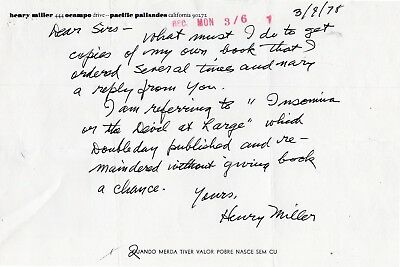 henry miller 444 ocampo drive—pacific palisades california 90272
REC. MON 3/6 1
3/9/78
Dear Sirs —
What must I do to get
copies of my own book that I
ordered several times and nary
a reply from you.
I am referring to "Insomnia
or the Devil at Large" which
Doubleday published and re-
maindered without giving book
a chance.
Yours,
Henry Miller
QUANDO MERDA TIVER VALOR POBRE NASCE SEM CU